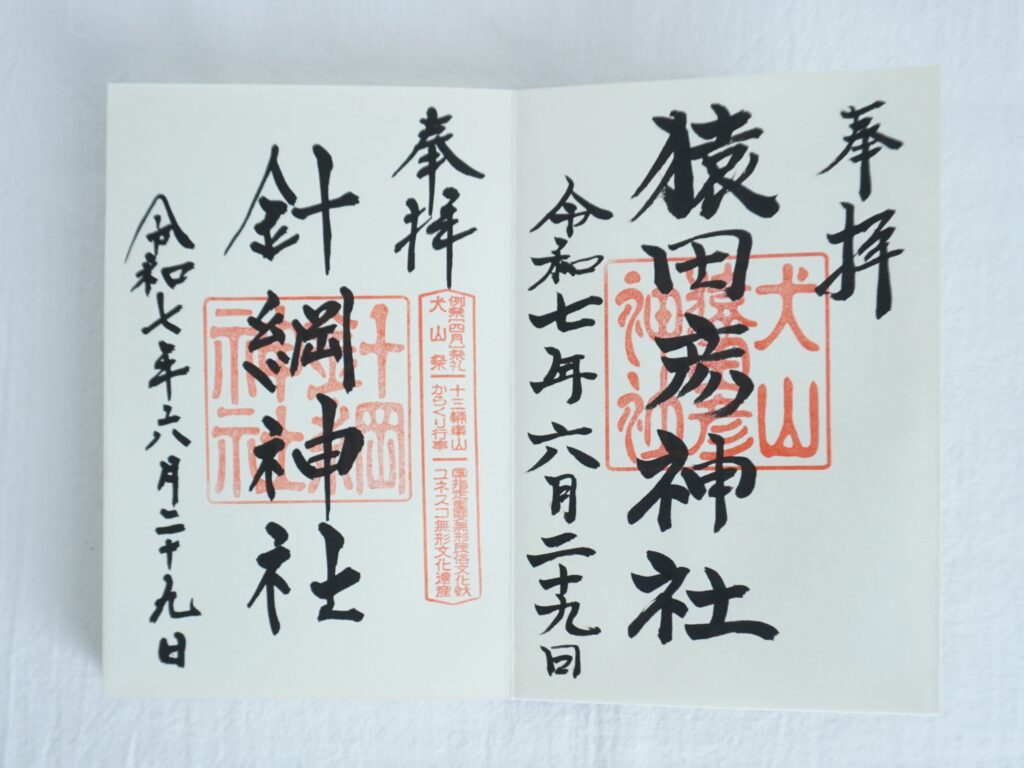 奉拝
猿田彦神社
犬山
猿田彦
神社
令和七年六月二十九日
奉拝
例祭(四月)祭礼
犬山祭
十三輌車山
からくり行事
国指定重要無形民俗文化財
ユネスコ無形文化遺産
針綱神社
針綱
神社
令和七年六月二十九日